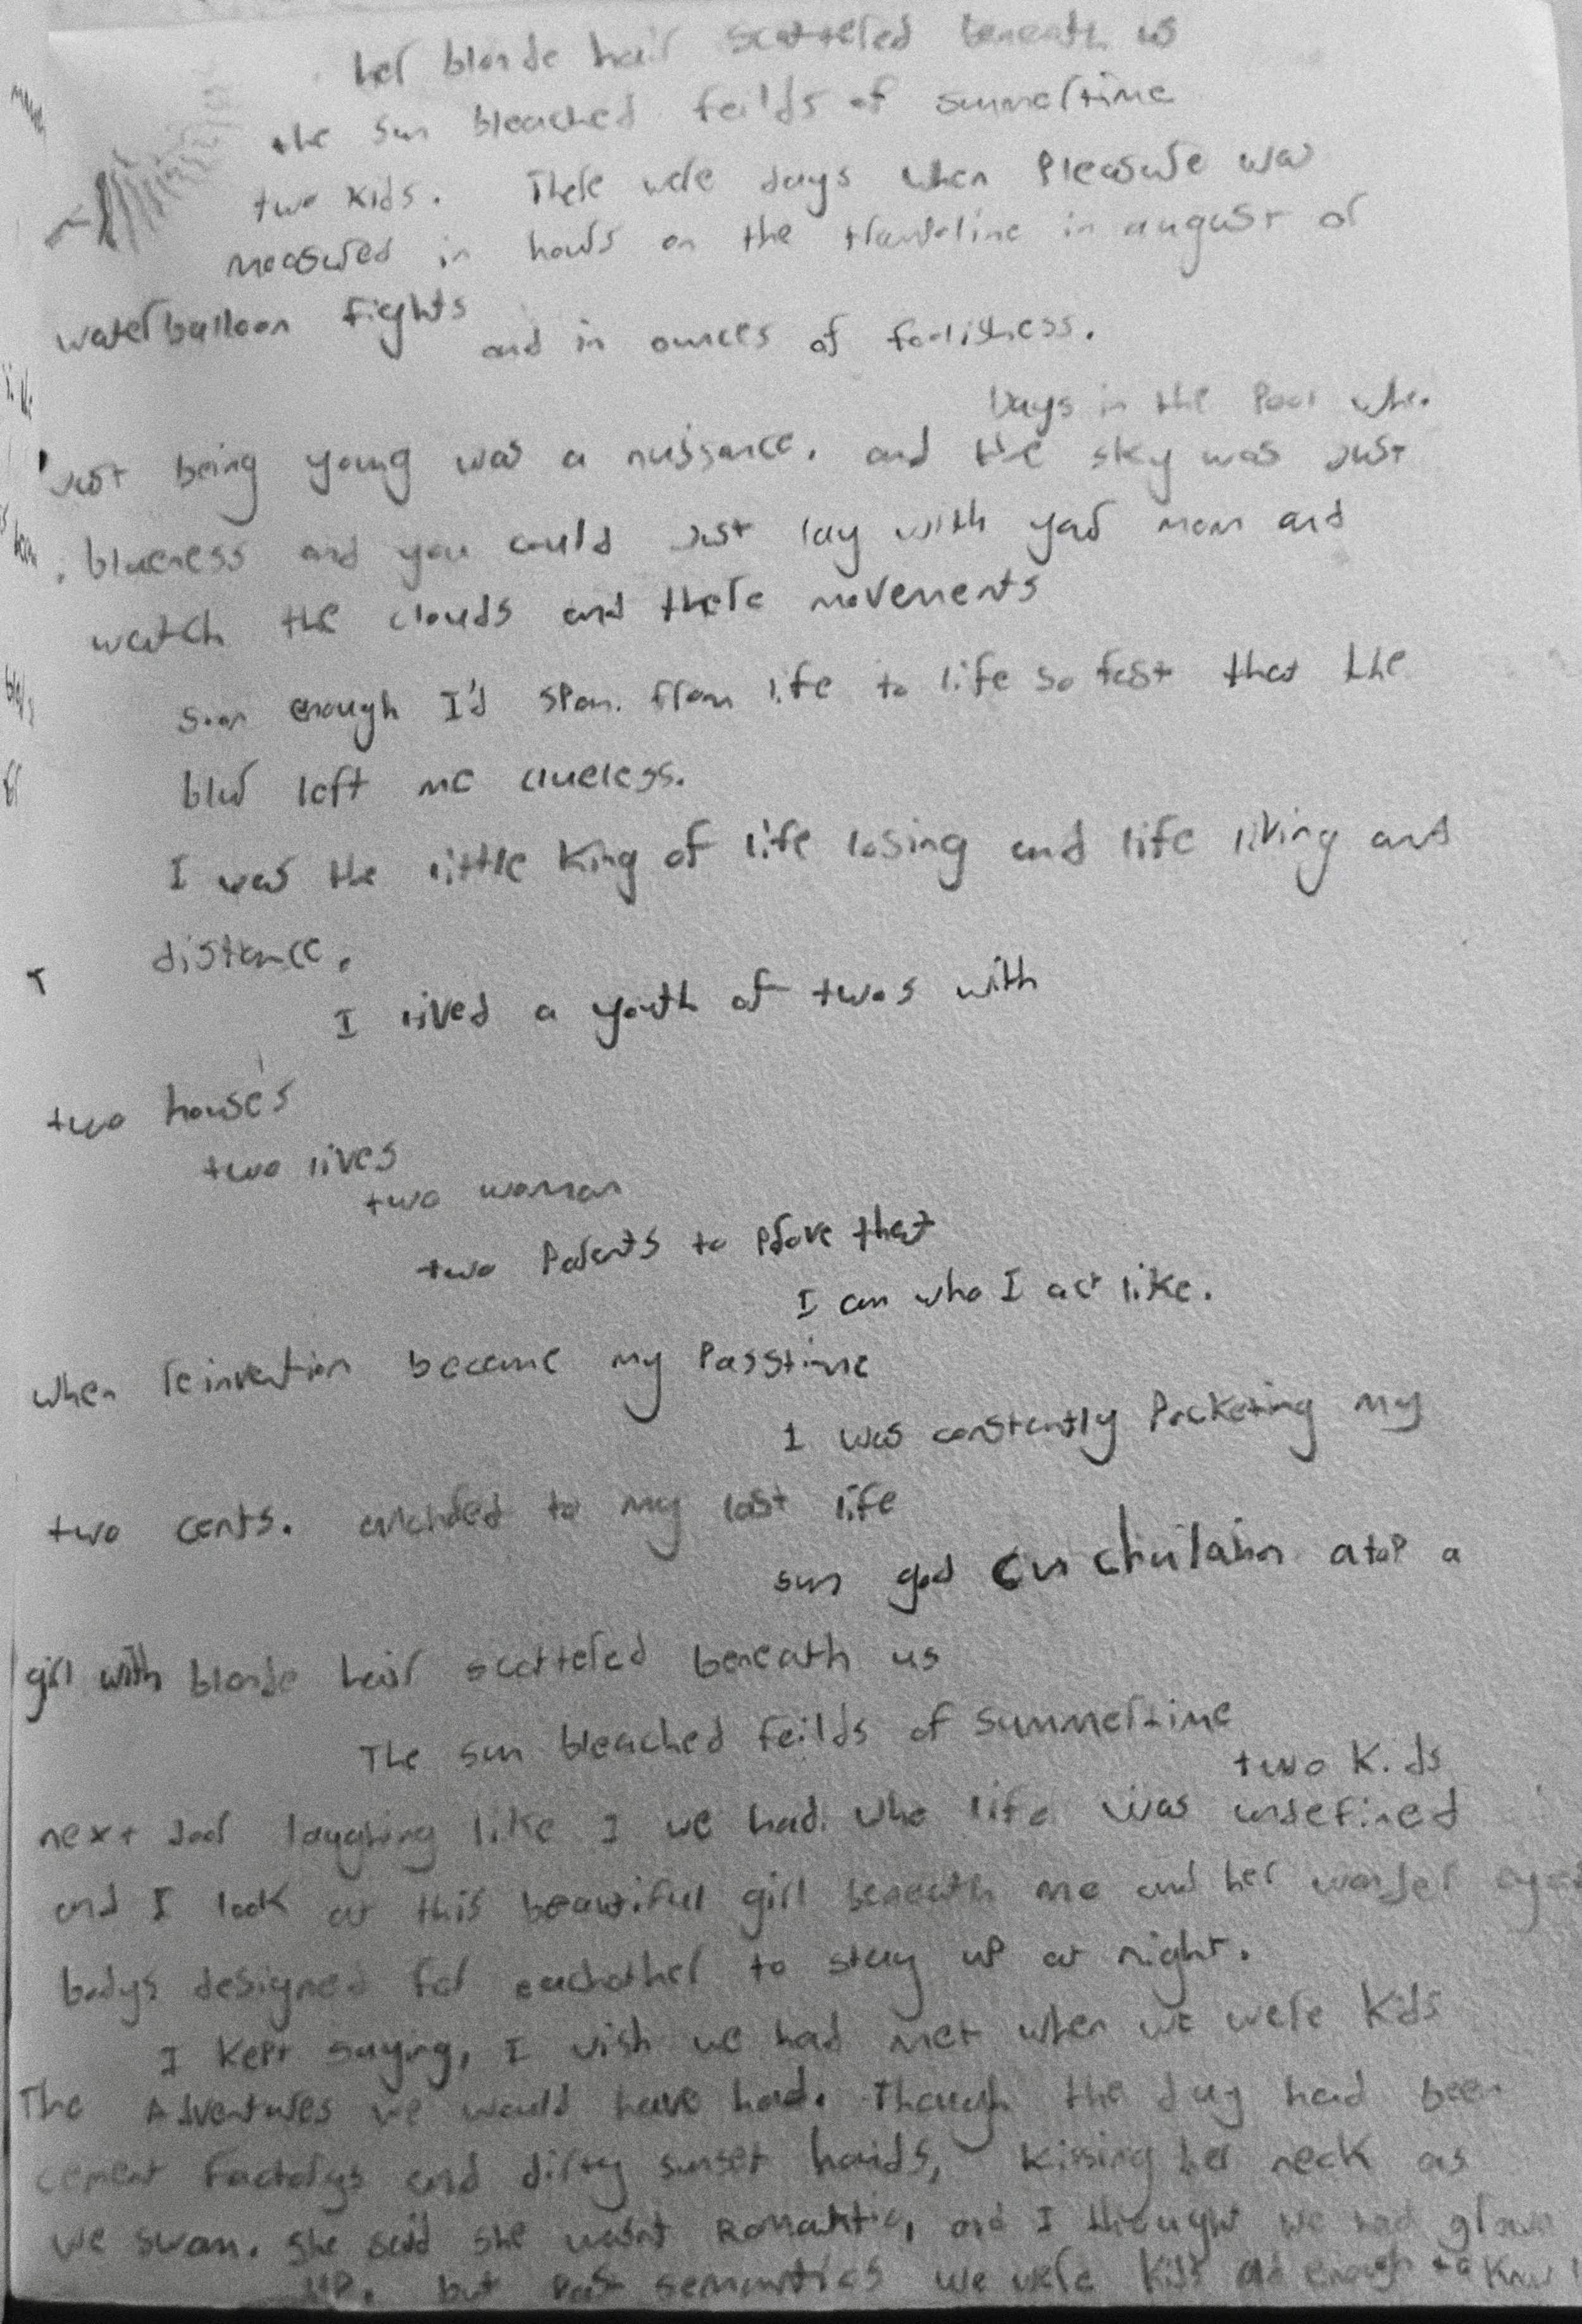 her blonde hair scattered beneath us
the sun bleached feilds of summertime
two kids. There were days when Pleasure was
measured in hours on the trampoline in august or
waterballoon fights
and in ounces of foolishness.
Days in the Pool whe.
Just being young was a nuissance. and the sky was Just
blueness and you could Just lay with your mom and
watch the clouds and there movements
soon enough I'd span. from life to life so fast that the
blur left me clueless.
I was the little King of life losing and life living and
distance.
I lived a youth of twos with
two house's
two lives
two woman
two Parents to Prove that
I am who I act like.
when reinvention became my Passtime
I was constantly Pocketing my
two cents. to my last life
sun god Cu chulainn atop a
girl with blonde hair scattered beneath us
The sun bleached feilds of summertime
two Kids
next door laughing like I we had. whe life was undefined
and I look at this beautiful girl beneath me and her wonder eyes
bodys designed for eachother to stay up at night.
I Kept saying, I wish we had met when we were Kids
The Adventures we would have had. Though the day had been
cement factorys and dirty sunset hands, Kissing her neck as
we swam. She said she wasnt Romantic, and I thought we had grown
UP. but Past semantics we were Kids old enough to Know